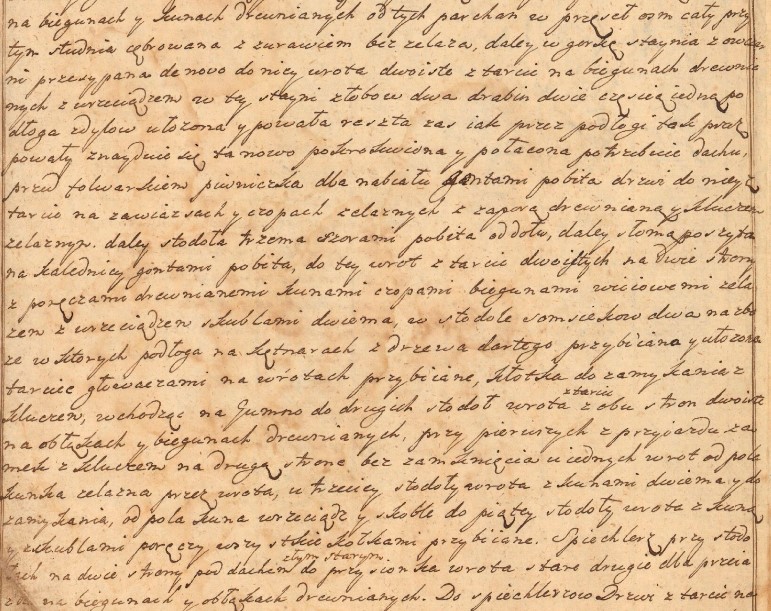 na biegunach y kunach drewnianych od tych parchan w przęseł osm cały przy
tym studnia cębrowana z zurawiem bez zelaza, daley w gorskę staynia z owcar
mi przesypana denovo do nicy wrota dwoiste z tarcic na biegunach drewnia
nych z wrzeciądzem w tey stayni złobow dwa drabin dwie częscią jedną po
dłoga z dylow ułozona y powała reszta zas iak przez podłogi tak przez
powały znayduie się ta nowo pokrokwiona y połacona potrzebuie dachu,
przed folwarkiem piwniczka dla nabiału gontami pobita drzwi do niey z
tarcic na zawiasach y czopach zelaznych z zaporą drewnianą y kluczem
zelaznym. daley stodoła trzema szorami pobita od dołu, daley słomą poszyta
na kalednicy gontami pobita, do tey wrot z tarcic dwoistych na dwie strony
z poręczami drewnianemi kunami czopami biegunami wiciowemi zela
zem z wrzeciądzem skublami dwiema, w stodole somsiekow dwa na zbo
ze w ktorych podłoga na kętnarach z drzewa dartego przybiciana y ułozona
tarcice głowaczami na wrotach przybiciane, kłotka do zamykania z
kluczem, wchodząc na Gumno do drugich stodoł wrota z tarcic z obu stron dwoiste
na obłąkach y biegunach drewnianych, przy pierwszych z przyiazdu za
mek z kluczem na drugą stronę bez zamknięcia u iednych wrot od pola
kunka zelazna przez wrota, u trzeciey stodoły wrota z kunami dwiema y do
zamykania, od pola kuna wrzeciądz y skoble do piątey stodoły wrota z kuną
y z skublami poręczy wszystkie kołkami przybiciane. Spiechlerz przy stodo
łach na dwie strony pod dachem złym starym do przysionka wrota stare drugie dla przeia
zdu na biegunach y obłąkach drewnianych. Do spiechlerzow Drzwi z tarcic na